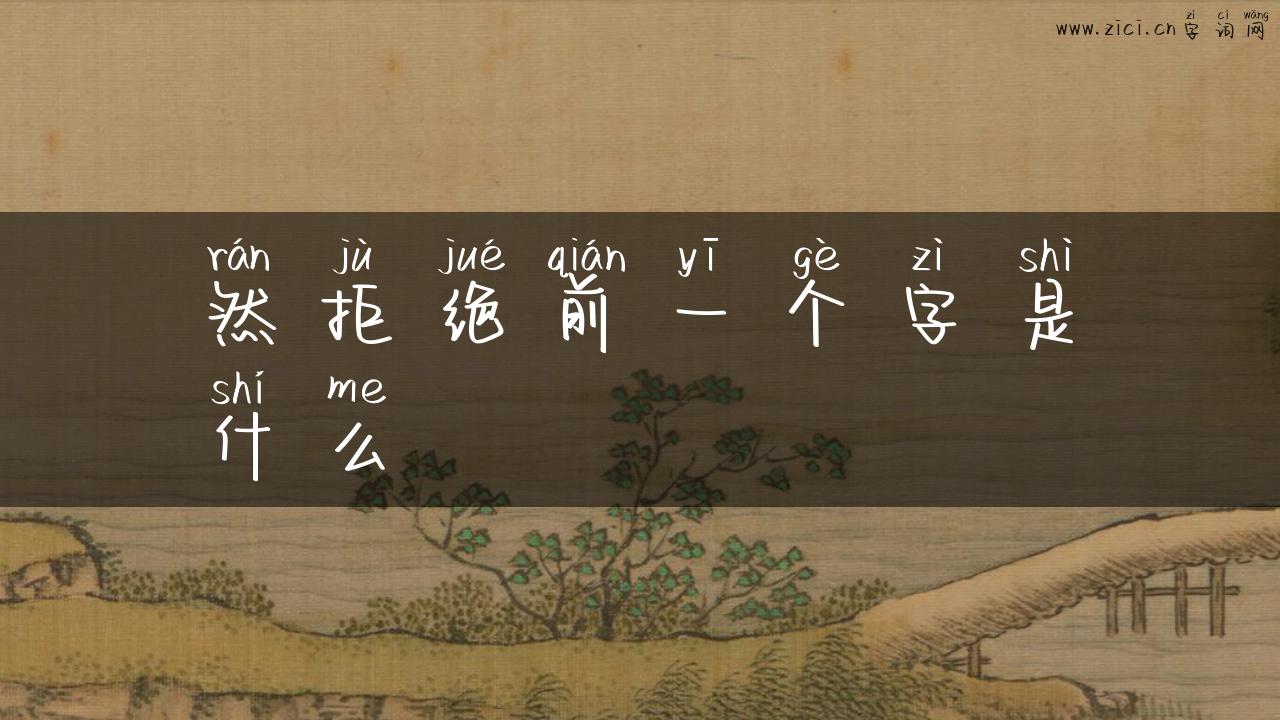 zì cí wǎng
www.zici.cn 字词网
rán jù jué qián yī gè zì shì
然拒绝前一个字是
shí me
什么